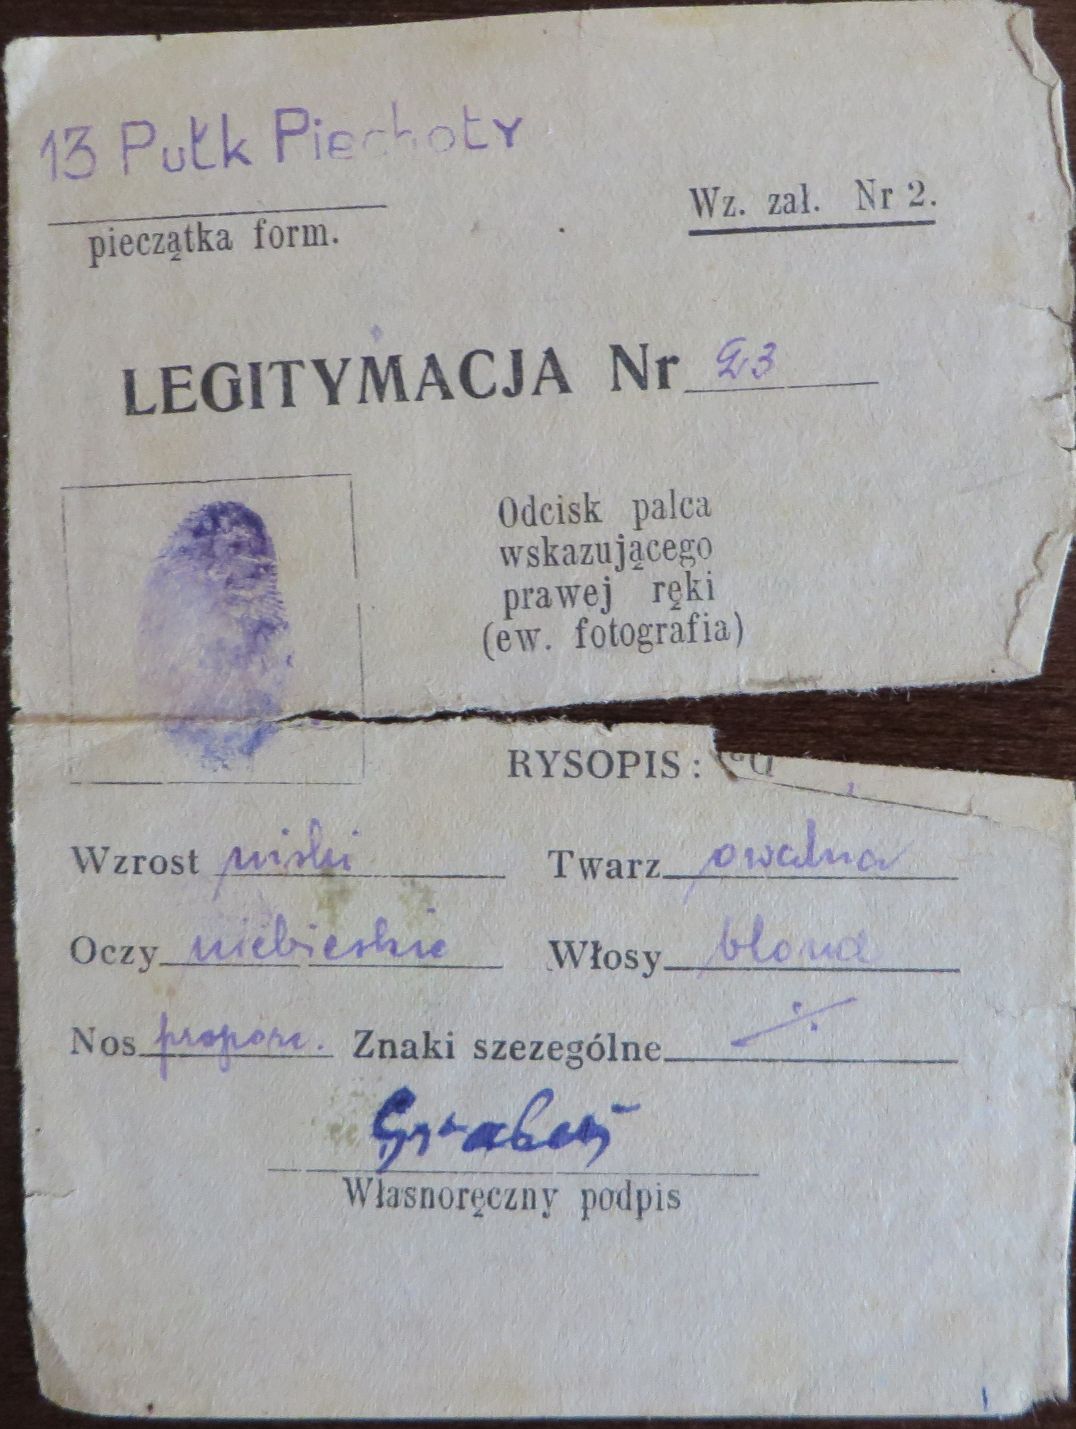 13 Pułk Piechoty
pieczątka form.
Wz. zał. Nr 2.
LEGITYMACJA Nr 23
Odcisk palca
wskazującego
prawej ręki
(ew. fotografia)
RYSOPIS:
Wzrost niski Twarz owalna
Oczy niebieskie Włosy blond
Nos proporc. Znaki szezególne ./.
Własnoręczny podpis